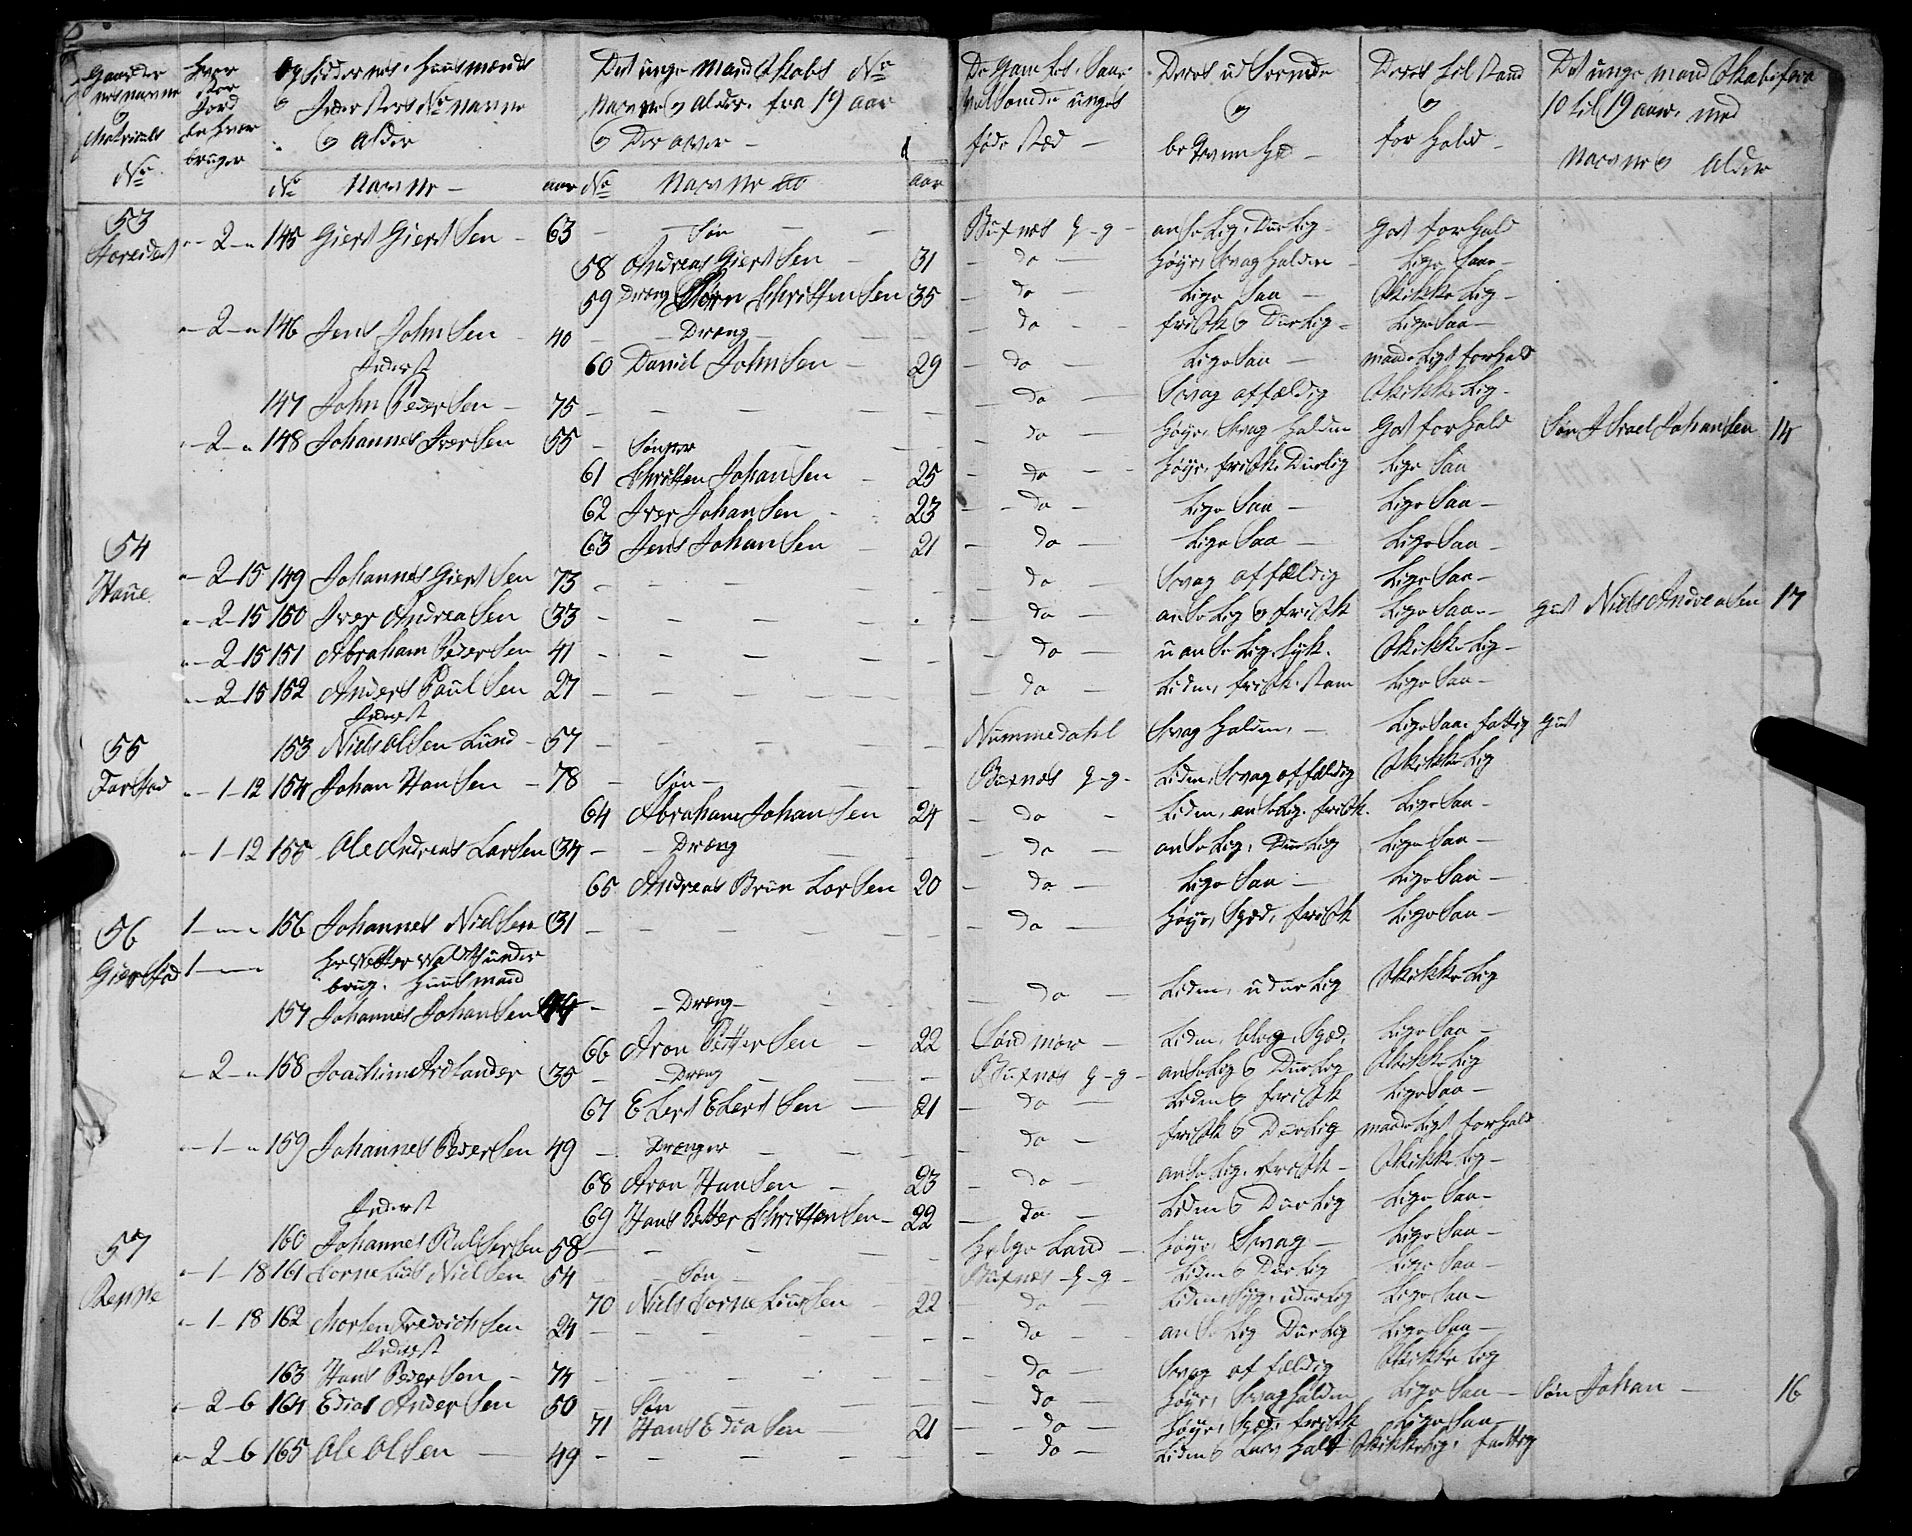 Gaardenes navne og Matriculs No.
Hvor stor Jord en hver bruger
Opsiddernes, Huusmænds og Indersters No navne og Alder
No Navne aar
Det unge Mandskabs No Navne og Alder fra 19 aar og Derover
No Navne aar
De Gamles Saavelsom de unges føde stæd
Deres udseende og
Deres tilstand og forhold
Det unge mandskabs fra 10 til 19 aar, med Navne og Alder
53 - 2 - 145 Giert Giertsen 63 - Søn - Buxnes - anselig, Duelig - Got forhold
58 Andreas Giertsen 31 - do - høy, Svag - Lige saa
59 Dræng Christensen 35 - do - Lige Saa - Skikkelig
- 2 - 146 Jens Johnsen 40 - Dræng - do - frisk og Duelig - Lige Saa
Inderst 60 Daniel Johnsen 29 - do - Lige Saa - maadeligt forhold
147 John Pedersen 75 - do - Svag affældig - Skikkelig
- 2 - 148 Johannes Iversen 55 - Sønner - do - høy, Svag - Got forhold - Søn Israel Johansen 14
61 Christen Johansen 25 - do - høy, frisk, Duelig - Lige Saa
62 Iver Johansen 23 - do - Lige Saa - Lige Saa
63 Jens Johansen 21 - do - Lige Saa - Lige Saa
54 Haue - 2 - 15 149 Johannes Giertsen 73 - do - Svag affældig - Lige Saa
- 2 - 15 150 Iver Andreasen 33 - do - anselig og frisk - Lige Saa - Niels Andreasen 17
- 2 - 15 151 Abraham Pedersen 41 - do - uanselig - Skikkelig
- 2 - 15 152 Anders Paulsen 27 - do - Liden, frisk - Lige Saa
Inderst
153 Niels Olsen Lund 57 - Nummedahl - Svag - Lige Saa fattig
55 Farstad - 1 - 12 154 Johan Hansen 78 - Søn - Buxnes - Liden, Svag affældig - Skikkelig
64 Abraham Johansen 24 - do - Liden, anselig, frisk - Lige Saa
- 1 - 12 155 Ole Andreas Larsen 34 - Dræng - do - anselig, Duelig - Lige Saa
65 Andreas Brun Larsen 20 - do - Lige Saa - Lige Saa
56 Gierstad 1 - 156 Johannes Nielsen 31 - do - høy, Spæd, frisk - Lige Saa
1 - brug. Huusmand
157 Johannes Johansen 44 - Dræng - do - Liden, uduelig - Skikkelig
66 Aron Pettersen 22 - Søndmør - Liden, Spæd - Lige Saa
- 2 - 158 Joachim 35 - Dræng - Buxnes - anselig og Duelig - Skikkelig
67 Elert Elertsen 21 - do - Liden og frisk - Lige Saa
- 1 - 159 Johannes Pedersen 49 - Drænger - do - frisk og Duelig - maadeligt forhold
68 Aron Hansen 23 - do - anselig, frisk - Skikkelig
Inderst 69 Hans Petter Christensen 22 - do - Liden og Duelig - Lige Saa
160 Johannes 58 - Helgeland - høy, Svag - Lige Saa
57 Renne - 1 - 18 161 Cornelius Nielsen 54 - Søn - Buxnes - Liden og Duelig - Lige Saa
70 Niels Corneliussen 22 - do - Liden, uduelig - Lige Saa
- 1 - 18 162 Morten Fredrichsen 24 - do - anselig Duelig - Lige Saa
Inderst
163 Hans Pedersen 74 - do - Svag affældig - Skikkelig
- 2 - 6 164 Edias Andersen 50 - Søn - do - høy, Svag - Lige Saa - Søn Johan 16
71 Hans Ediasen 21 - do - høy, Spæd, frisk - Lige Saa
- 2 - 6 165 Ole Olsen 49 - do - Liden og halt - Skikkelig, fattig